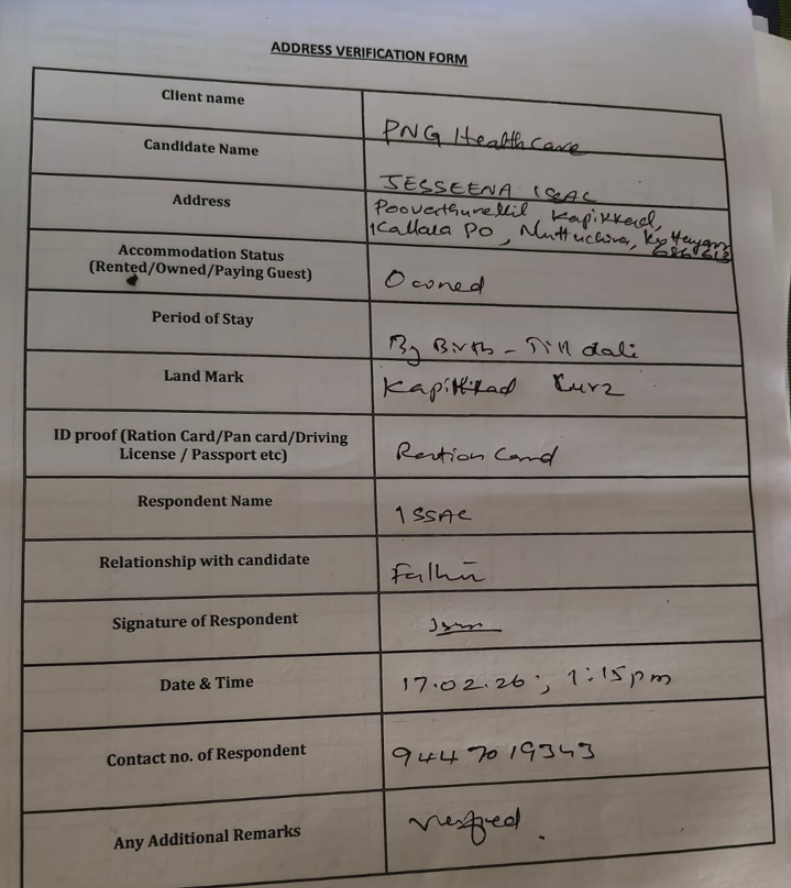 ADDRESS VERIFICATION FORM
Client name
PNG HealthCare
Candidate Name
JESSEENA ISSAC
Address
Kapikkad,
Kallara PO, Muttuchira,
Accommodation Status
(Rented/Owned/Paying Guest)
Owned
Period of Stay
By Birth - Till
Land Mark
Kapikkad
ID proof (Ration Card/Pan card/Driving
License / Passport etc)
Ration Card
Respondent Name
ISSAC
Relationship with candidate
Father
Signature of Respondent
Date & Time
17.02.26, 1:15pm
Contact no. of Respondent
9447019343
Any Additional Remarks
verified.